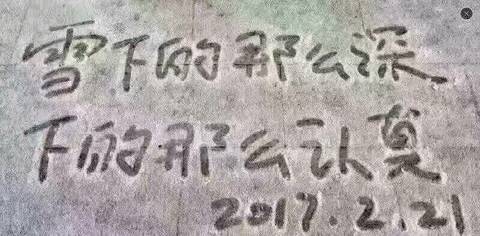 雪下的那么深
下的那么认真
2017.2.21